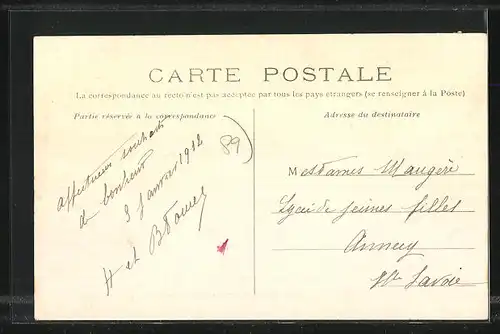 CARTE POSTALE
La correspondance au recto n'est pas acceptée par tous les pays étrangers (se renseigner à la Poste)
Partie réservée à la correspondance
Adresse du destinataire
affectueux souhaits
de bonheur
3 Janvier 1912
H et B
89
Mesdames Maugéré
Lycée de jeunes filles
Annecy
Hte Savoie